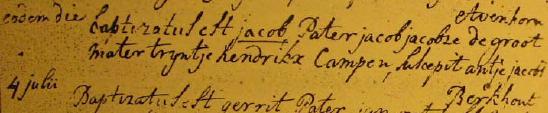 eodem die baptizatus est jacob, Pater jacob jacobze de groot Avenhorn
mater tryntje hendrikx Campen, suscepit antje jacobs
4 julii Baptizatus est gerrit Pater jan Berkhout